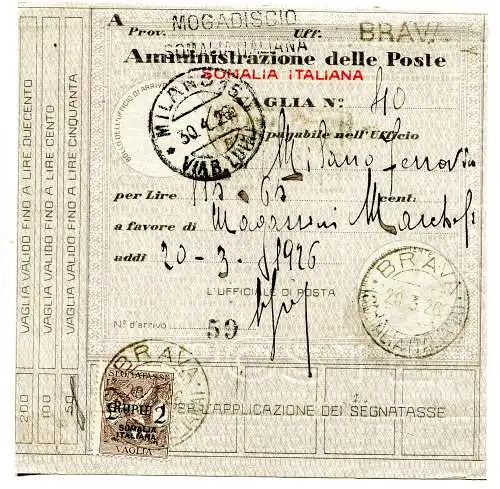 A
MOGADISCIO
Prov. Uff. BRAVA
SOMALIA ITALIANA
Amministrazione delle Poste
SOMALIA ITALIANA
VAGLIA N.° 40
BOLLO DELL'UFFICIO DI ARRIVO
MILANO
30.4.26
VIA B. LUPI
pagabile nell'Ufficio
Milano
per Lire cent.
a favore di Magazzini
addì 20-3-1926
L'UFFICIALE DI POSTA
N.° d'arrivo 59
BRAVA
20.3.26
SOMALIA ITALIANA
VAGLIA VALIDO FINO A LIRE DUECENTO
VAGLIA VALIDO FINO A LIRE CENTO
VAGLIA VALIDO FINO A LIRE CINQUANTA
200
100
50
BRAVA
SEGNATASSE
2 RUPIE 2
SOMALIA
ITALIANA
VAGLIA
PER L'APPLICAZIONE DEI SEGNATASSE